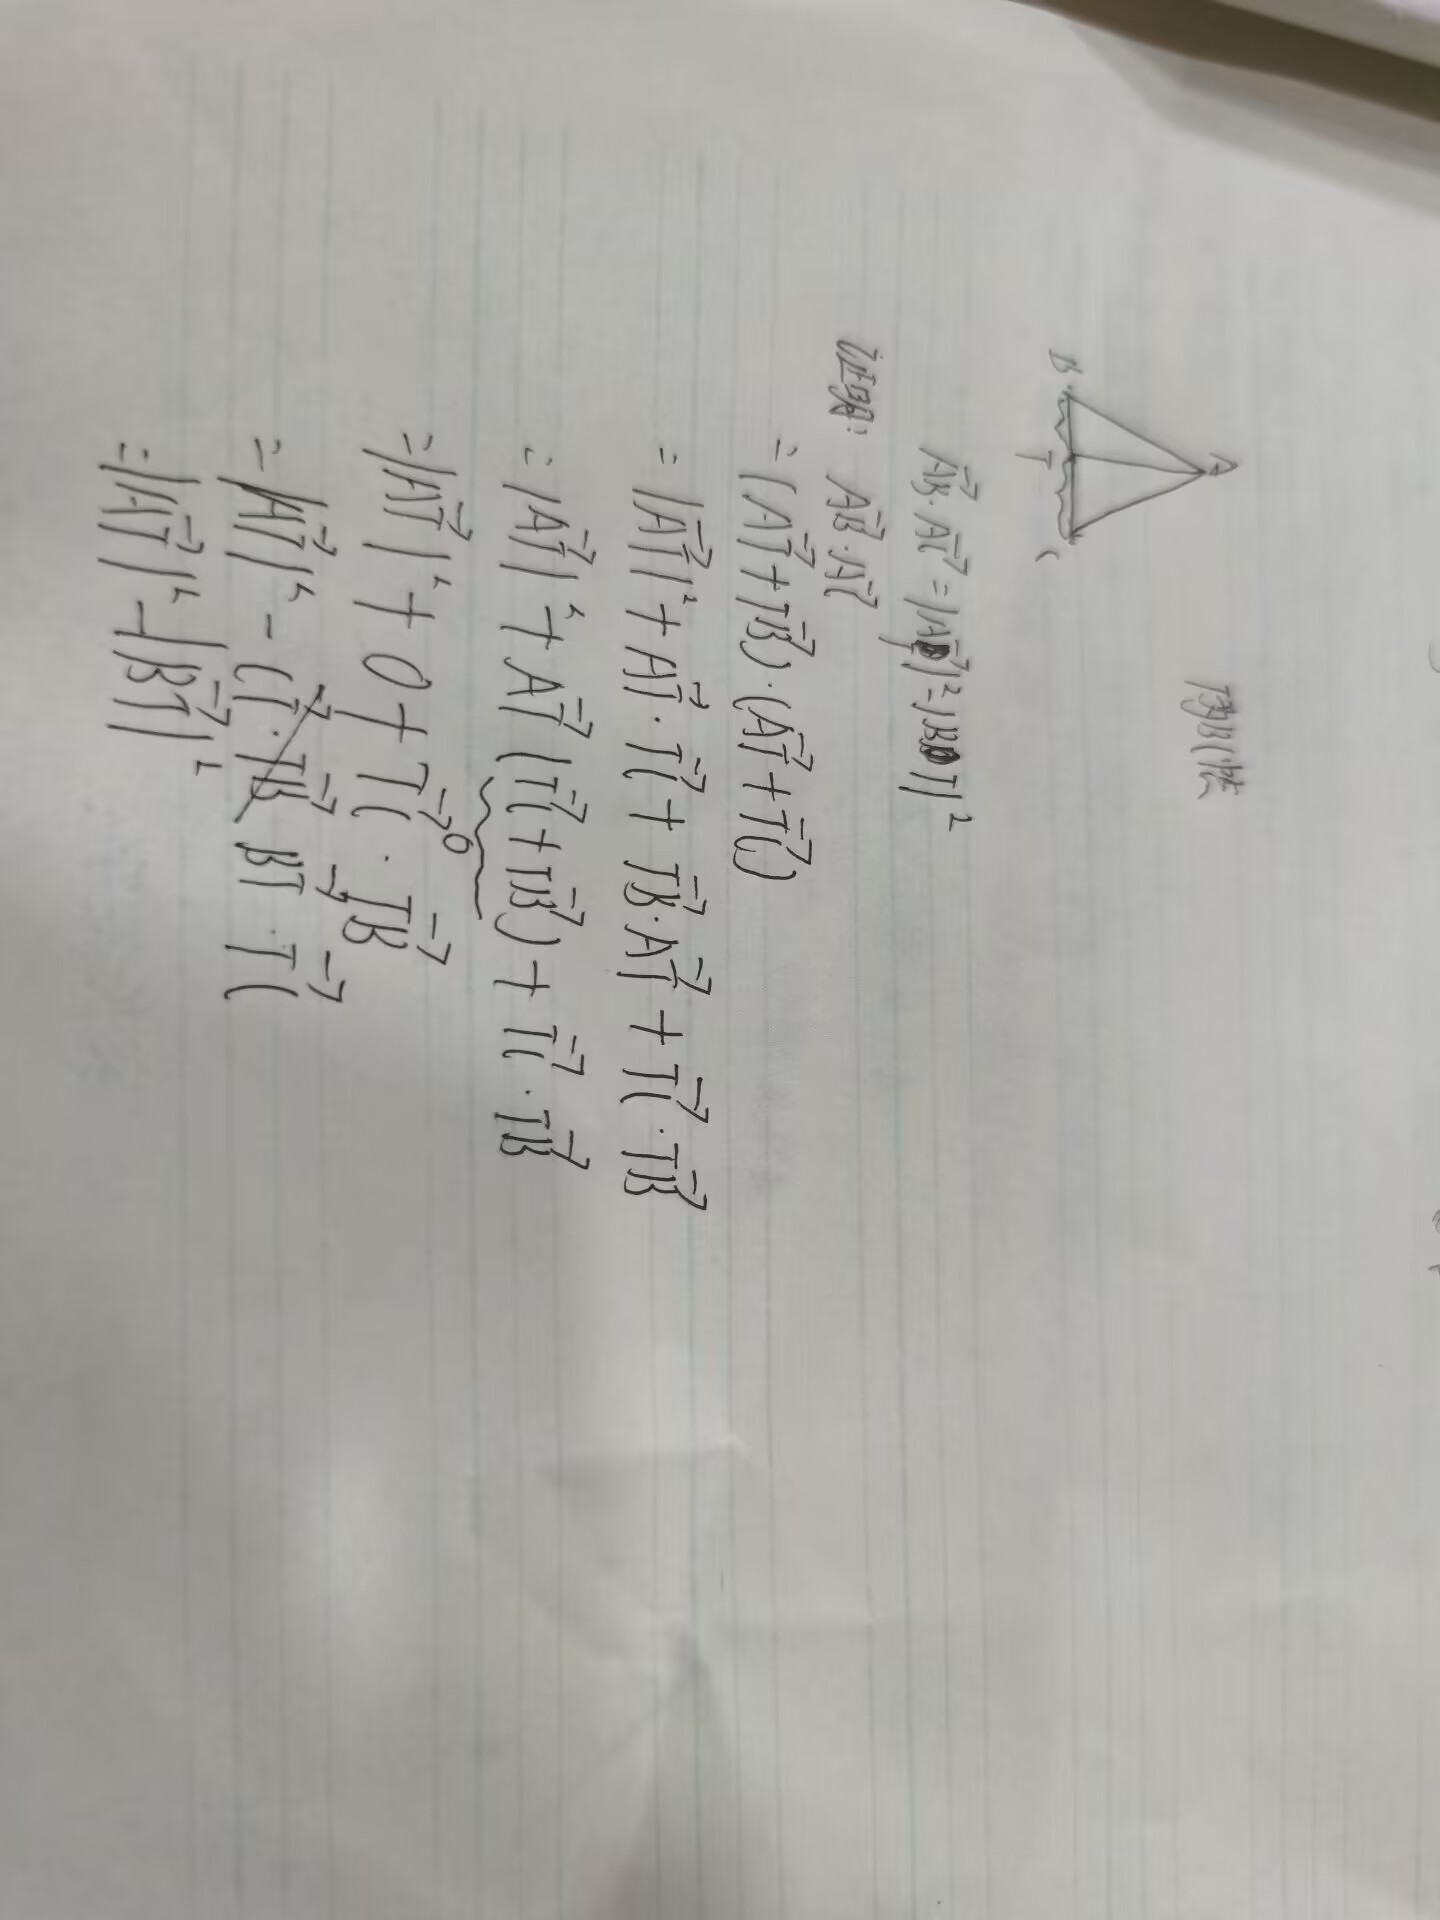 T为BC中点
A
B
T
C
AB⃗·AC⃗=|AT⃗|²-|BT|²
证明: AB⃗·AC⃗
=(AT⃗+TB⃗)·(AT⃗+TC⃗)
=|AT⃗|²+AT⃗·TC⃗+TB⃗·AT⃗+TC⃗·TB⃗
=|AT⃗|²+AT⃗(TC⃗+TB⃗)+TC⃗·TB⃗
0⃗
=|AT⃗|²+0+TC⃗·TB⃗
=|AT⃗|²-BT⃗·TC⃗
=|AT⃗|²-|BT⃗|²